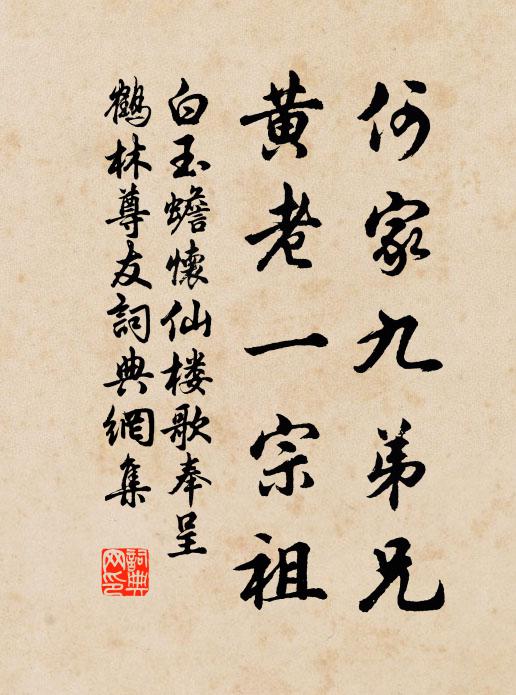 何家九弟兄
黄老一宗祖
白玉蟾懷仙楼歌奉呈
鶴林尊友詞典網集
詞典网印